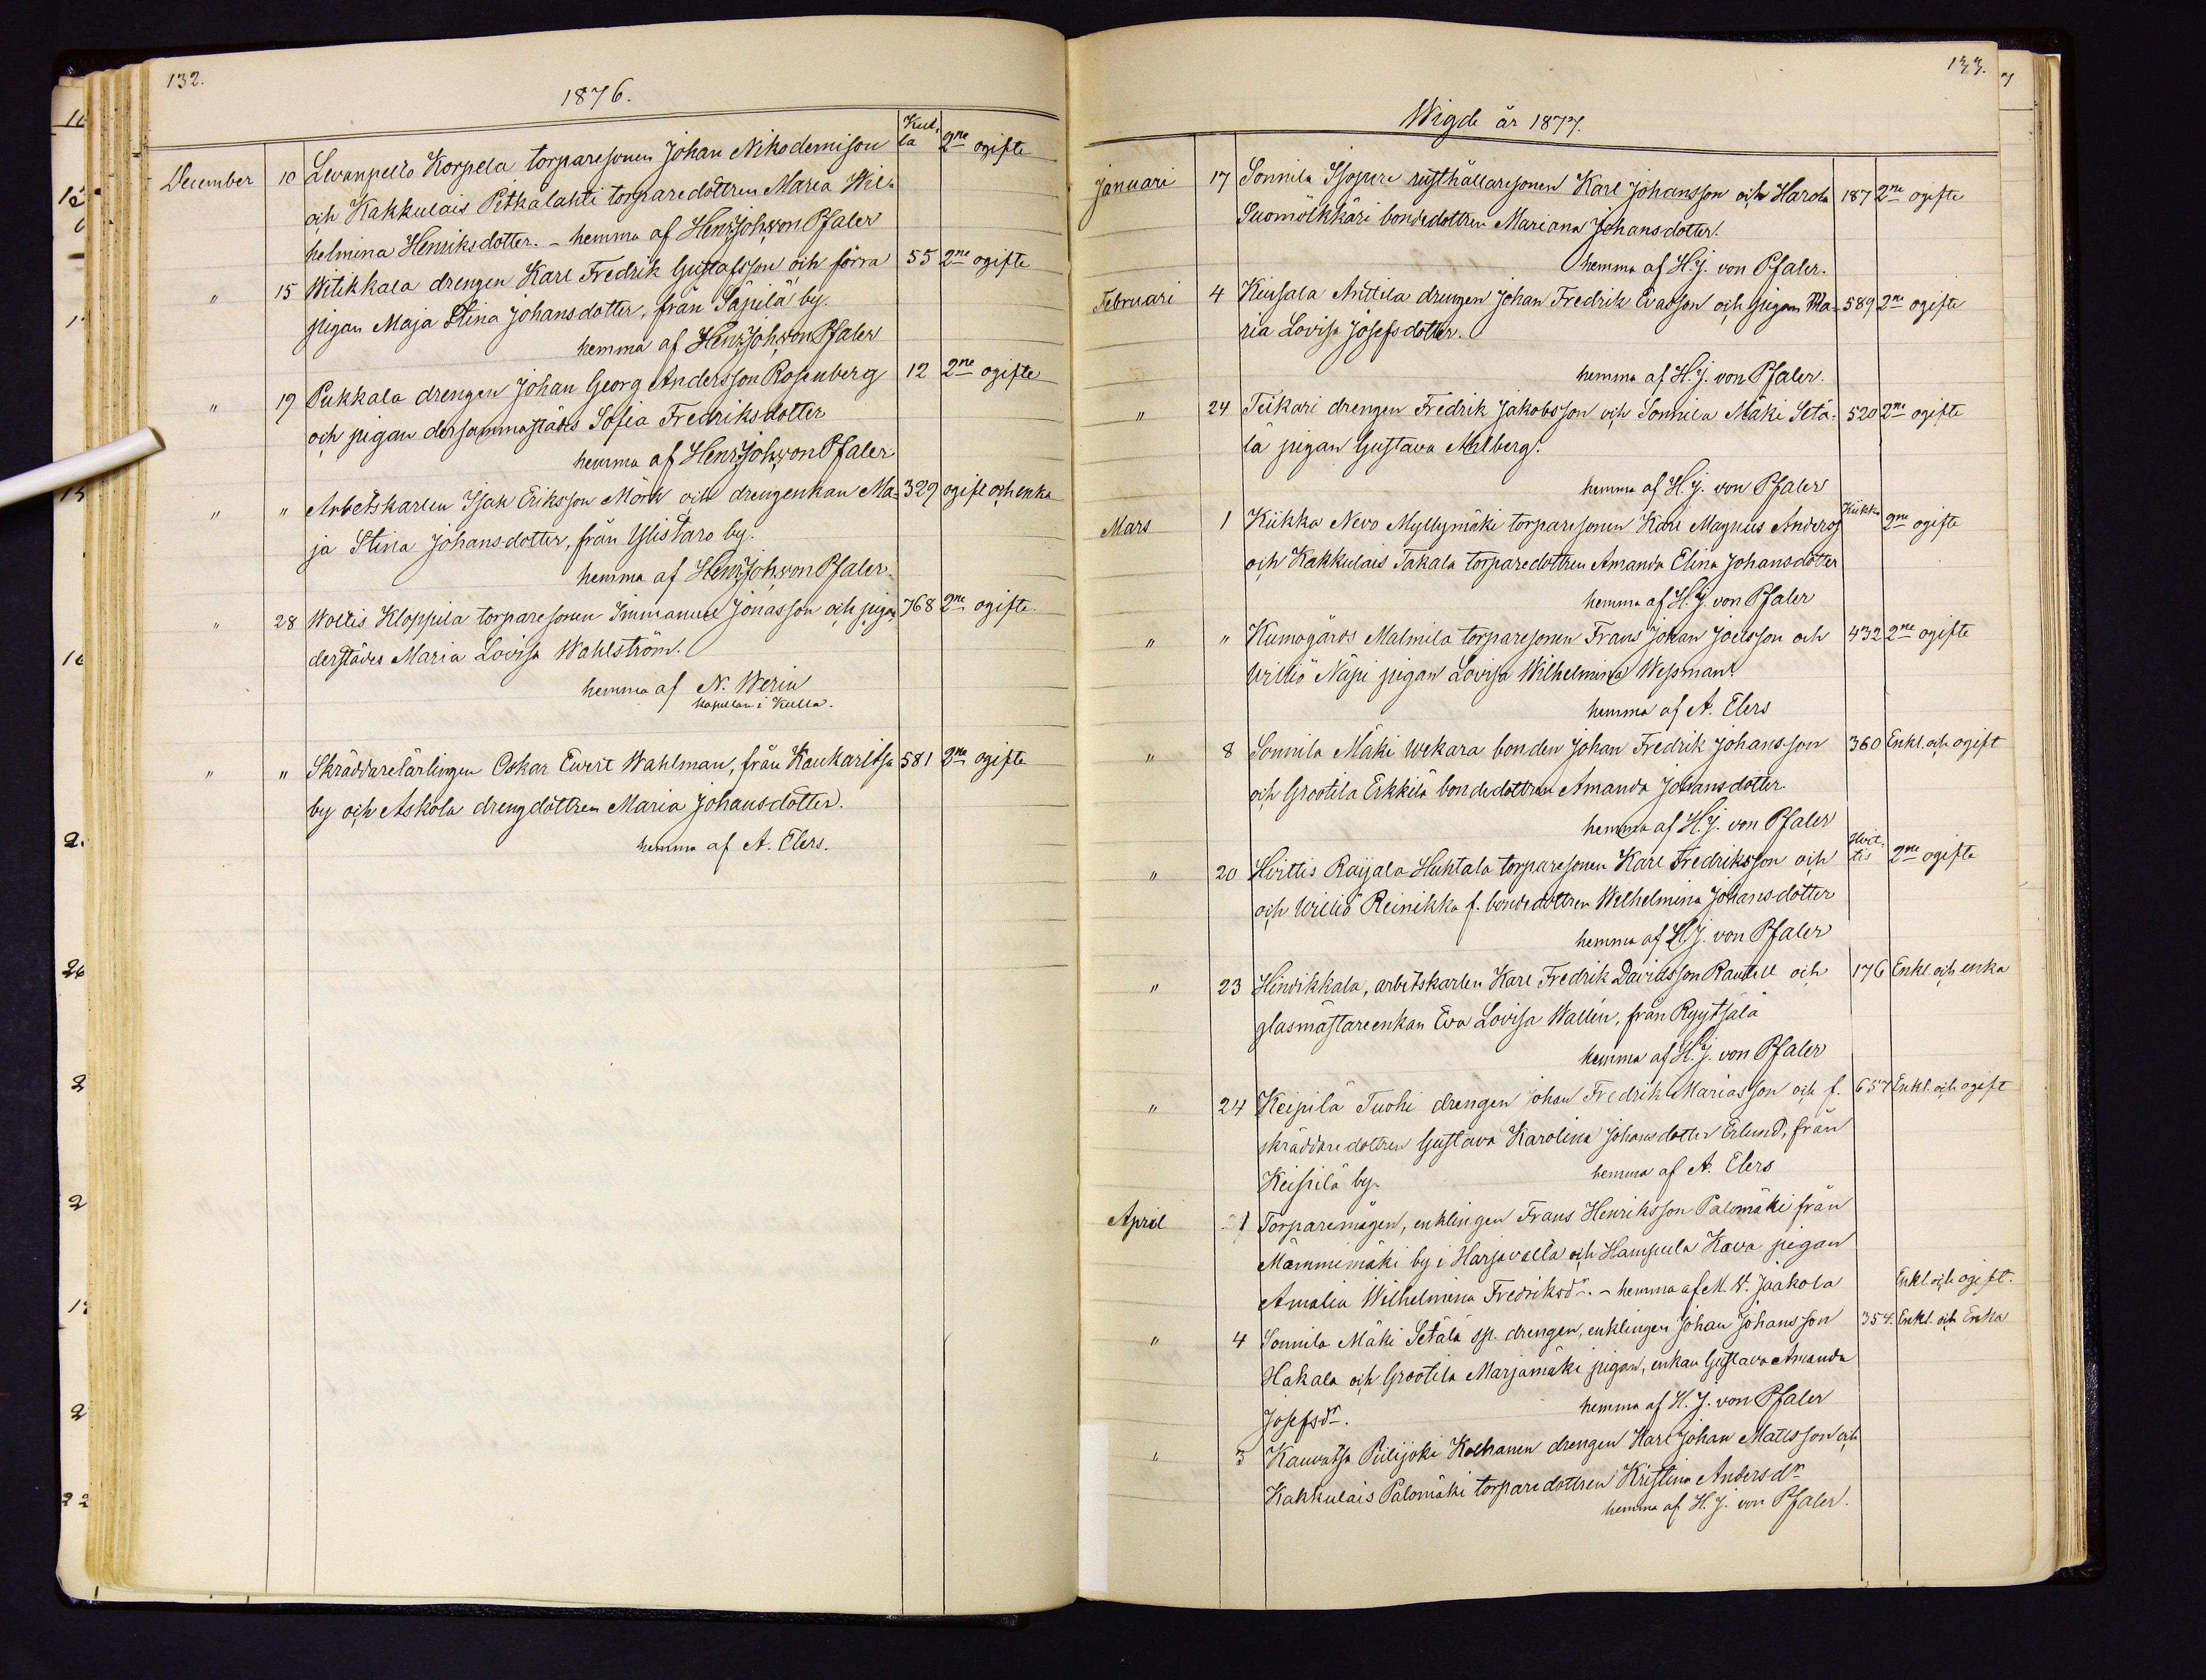 132.
1876.
December 10 Levanpelto Korpela torparesonen Johan Nikodemisson Kul- 2ne ogifte
och Kakkulais Pitkälahti torparedottren Maria Wil- la
helmina Henriksdotter. - hemma af Henr. Joh. von Pfaler
" 15 Witikkala drengen Karl Fredrik Gustafsson och förra 55 2ne ogifte
pigan Maja Stina Johansdotter, från Säpilä by.
hemma af Henr. Joh. von Pfaler
" 19 Pukkala drengen Johan Georg Andersson Rosenberg 12 2ne ogifte
och pigan dersammastädes Sofia Fredriksdotter
hemma af Henr. Joh. von Pfaler
" " Arbetskarlen Isak Eriksson Mörk och drengenkan Ma- 329 ogift och enka
ja Stina Johansdotter, från Ylistaro by.
hemma af Henr. Joh. von Pfaler.
" 28 Woitis Kloppila torparesonen Immanuel Jonasson och pigan 768 2ne ogifte.
derstädes Maria Lovisa Wahlström.
hemma af N. Werin
kapellan i Kulla.
" " Skräddarelärlingen Oskar Ewert Wahlman, från Kaukaritsa 581 2ne ogifte
by och Askola drengdottren Maria Johansdotter.
hemma af A. Elers.
133.
Wigde år 1877.
Januari 17 Sonnila Isopere rusthållaresonen Karl Johansson och Harola 187 2ne ogifte
Suomölkkäri bondedottren Mariana Johansdotter.
hemma af H. J. von Pfaler.
Februari 4 Keusala Anttila drengen Johan Fredrik Evasson och pigan Ma- 589 2ne ogifte
ria Lovisa Josefsdotter.
hemma af H. J. von Pfaler.
" 24 Tiikari drengen Fredrik Jakobsson och Sonnila Mäki Setä- 520 2ne ogifte
lä pigan Gustava Melberg.
hemma af H. J. von Pfaler
Mars 1 Kiikka Nevo Myllymäki torparesonen Karl Magnus Anderss. Kiikka 2ne ogifte
och Kakkulais Takala torparedottren Amanda Elina Johansdotter
hemma af H. J. von Pfaler
" " Kumogårds Malmila torparesonen Frans Johan Joelsson och 432 2ne ogifte
Williö Näpi pigan Lovisa Wilhelmina Wessman.
hemma af A. Elers
" 8 Sonnila Mäki Wekara bonden Johan Fredrik Johansson 360 Enkl. och ogift
och Grootila Erkkilä bondedottren Amanda Johansdotter.
hemma af H. J. von Pfaler
" 20 Hvittis Raijala Huhtala torparesonen Karl Fredriksson och Hvit- 2ne ogifte
och Williö Reinikka f. bondedottren Wilhelmina Johansdotter tis
hemma af H. J. von Pfaler
" 23 Hindikkala, arbetskarlen Karl Fredrik Davidsson Rautell och 176 Enkl. och enka
glasmästareenkan Eva Lovisa Wallén, från Ryytsälä
hemma af H. J. von Pfaler
" 24 Keipilä Tuohi drengen Johan Fredrik Mariasson och f. 657 Enkl. och ogift
skräddaredottren Gustava Karolina Johansdotter Erlund, från
Keipilä by. hemma af A. Elers
April 1 Torparemågen, enklingen Frans Henriksson Palomäki från
Mämmimäki by i Harjavalta och Hampula Kava pigan
Amalia Wilhelmina Fredriksdr. - hemma af M. W. Jaakola Enkl. och ogift.
" 4 Sonnila Mäki Setälä sp. drengen, enklingen Johan Johansson 354. Enkl. och Enka
Hakala och Grootila Marjamäki pigan, enkan Gustava Amanda
Josefsdr. hemma af H. J. von Pfaler
" 3 Kauvatsa Piilijoki Kolhanen drengen Karl Johan Matsson och
Kakkulais Palomäki torparedottren Kristina Andersdr
hemma af H. J. von Pfaler.